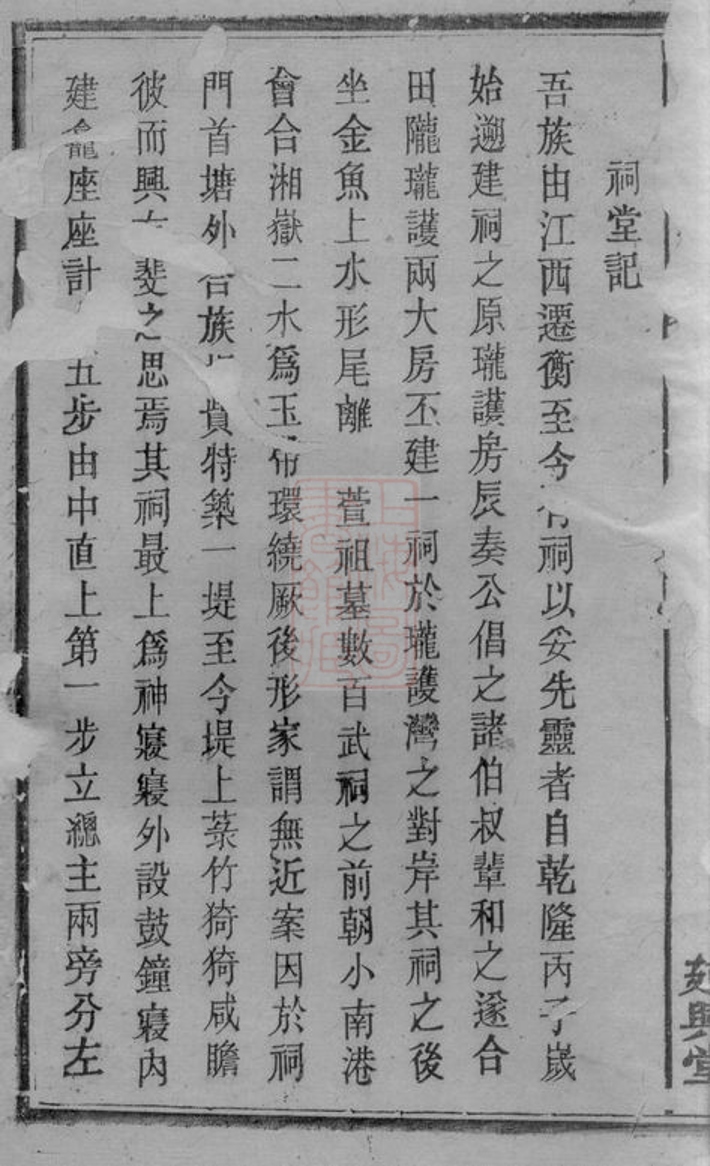 祠堂記
吾族由江西遷衡至今有祠以妥先靈者自乾隆丙子歲
始遡建祠之原瓏護房辰奏公倡之諸伯叔輩和之遂合
田隴瓏護兩大房丕建一祠於瓏護灣之對岸其祠之後
坐金魚上水形尾離 萱祖墓數百武祠之前朝小南港
會合湘嶽二水爲玉帶環繞厥後形家謂無近案因於祠
門首塘外合族 貲特築一堤至今堤上菉竹猗猗咸瞻
彼而興有斐之思焉其祠最上爲神寢寢外設鼓鐘寢內
建龕座座計 五步由中直上第一步立總主兩旁分左